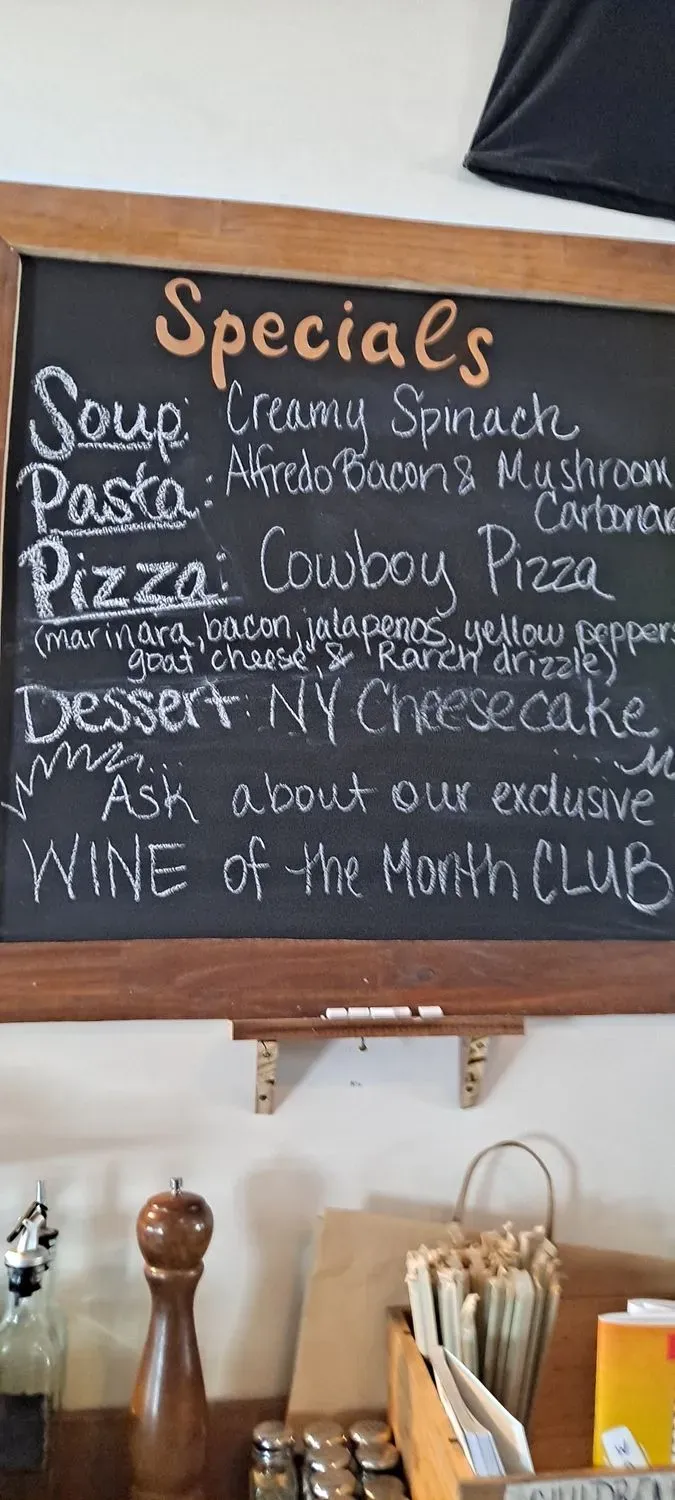 Specials
Soup: Creamy Spinach
Pasta: Alfredo Bacon & Mushroom
Carbonar
Pizza: Cowboy Pizza
(marinara, bacon, jalapenos, yellow peppers
goat cheese, & Ranch drizzle)
Dessert: NY Cheesecake
Ask about our exclusive
WINE of the Month CLUB
W
CHILDREN